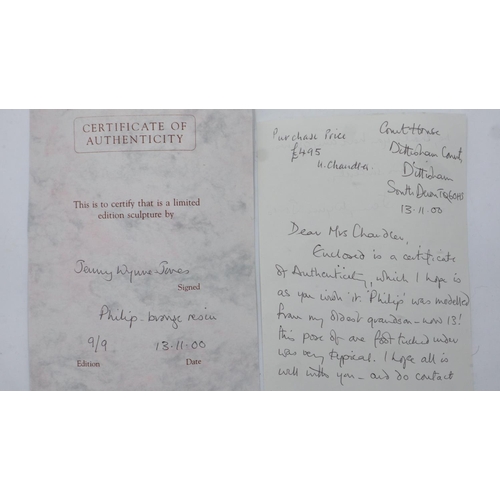 CERTIFICATE OF
AUTHENTICITY
This is to certify that is a limited
edition sculpture by
Jenny Wynne Jones
Signed
Philip - bronze resin
9/9 13.11.00
Edition Date
Purchase Price
£495
H. Chandler.
Court House
Dittisham Court
Dittisham
South Devon TQ6 0HS
13.11.00
Dear Mrs Chandler,
Enclosed is a certificate
of Authenticity, which I hope is
as you wish it. 'Philip' was modelled
from my oldest grandson - now 13!
this pose of one foot tucked under
was very typical. I hope all is
well with you - and do contact